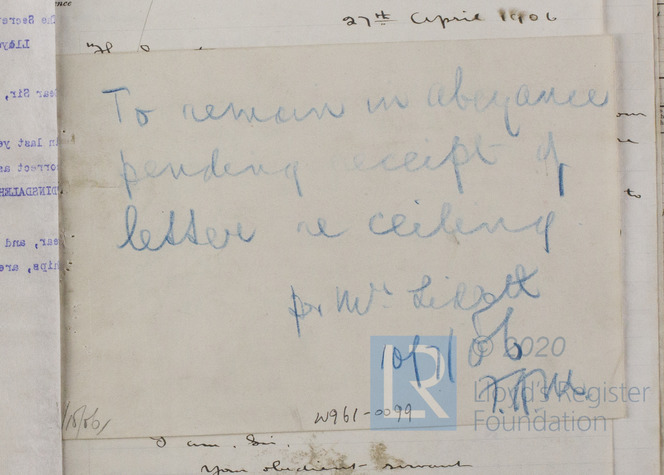 27th April 1906
To remain in abeyance
pending receipt of
letter re ceiling
pr Mr
10/7/06
W961-0099
© 2020
Lloyd's Register
Foundation
LR
I am, Sir,
Your obedient servant
The Secre
Lloy
ear Sir,
in last ye
orrect as
DINSDALEH
ear, and
hips, are
to